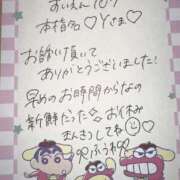 本指名♡Yさま♡
お誘い頂いて
ありがとうございました!
早めのお時間からなの
新鮮だった お休み
まんきつしてね